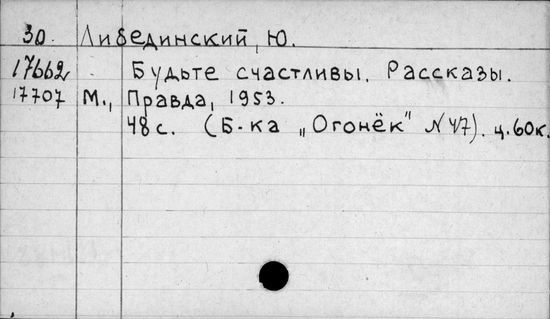 30. Либединский, Ю.
17662 Будьте счастливы. Рассказы.
17707 М., Правда, 1953.
48 с. (Б-ка „Огонёк" N 47). ц. 60к.